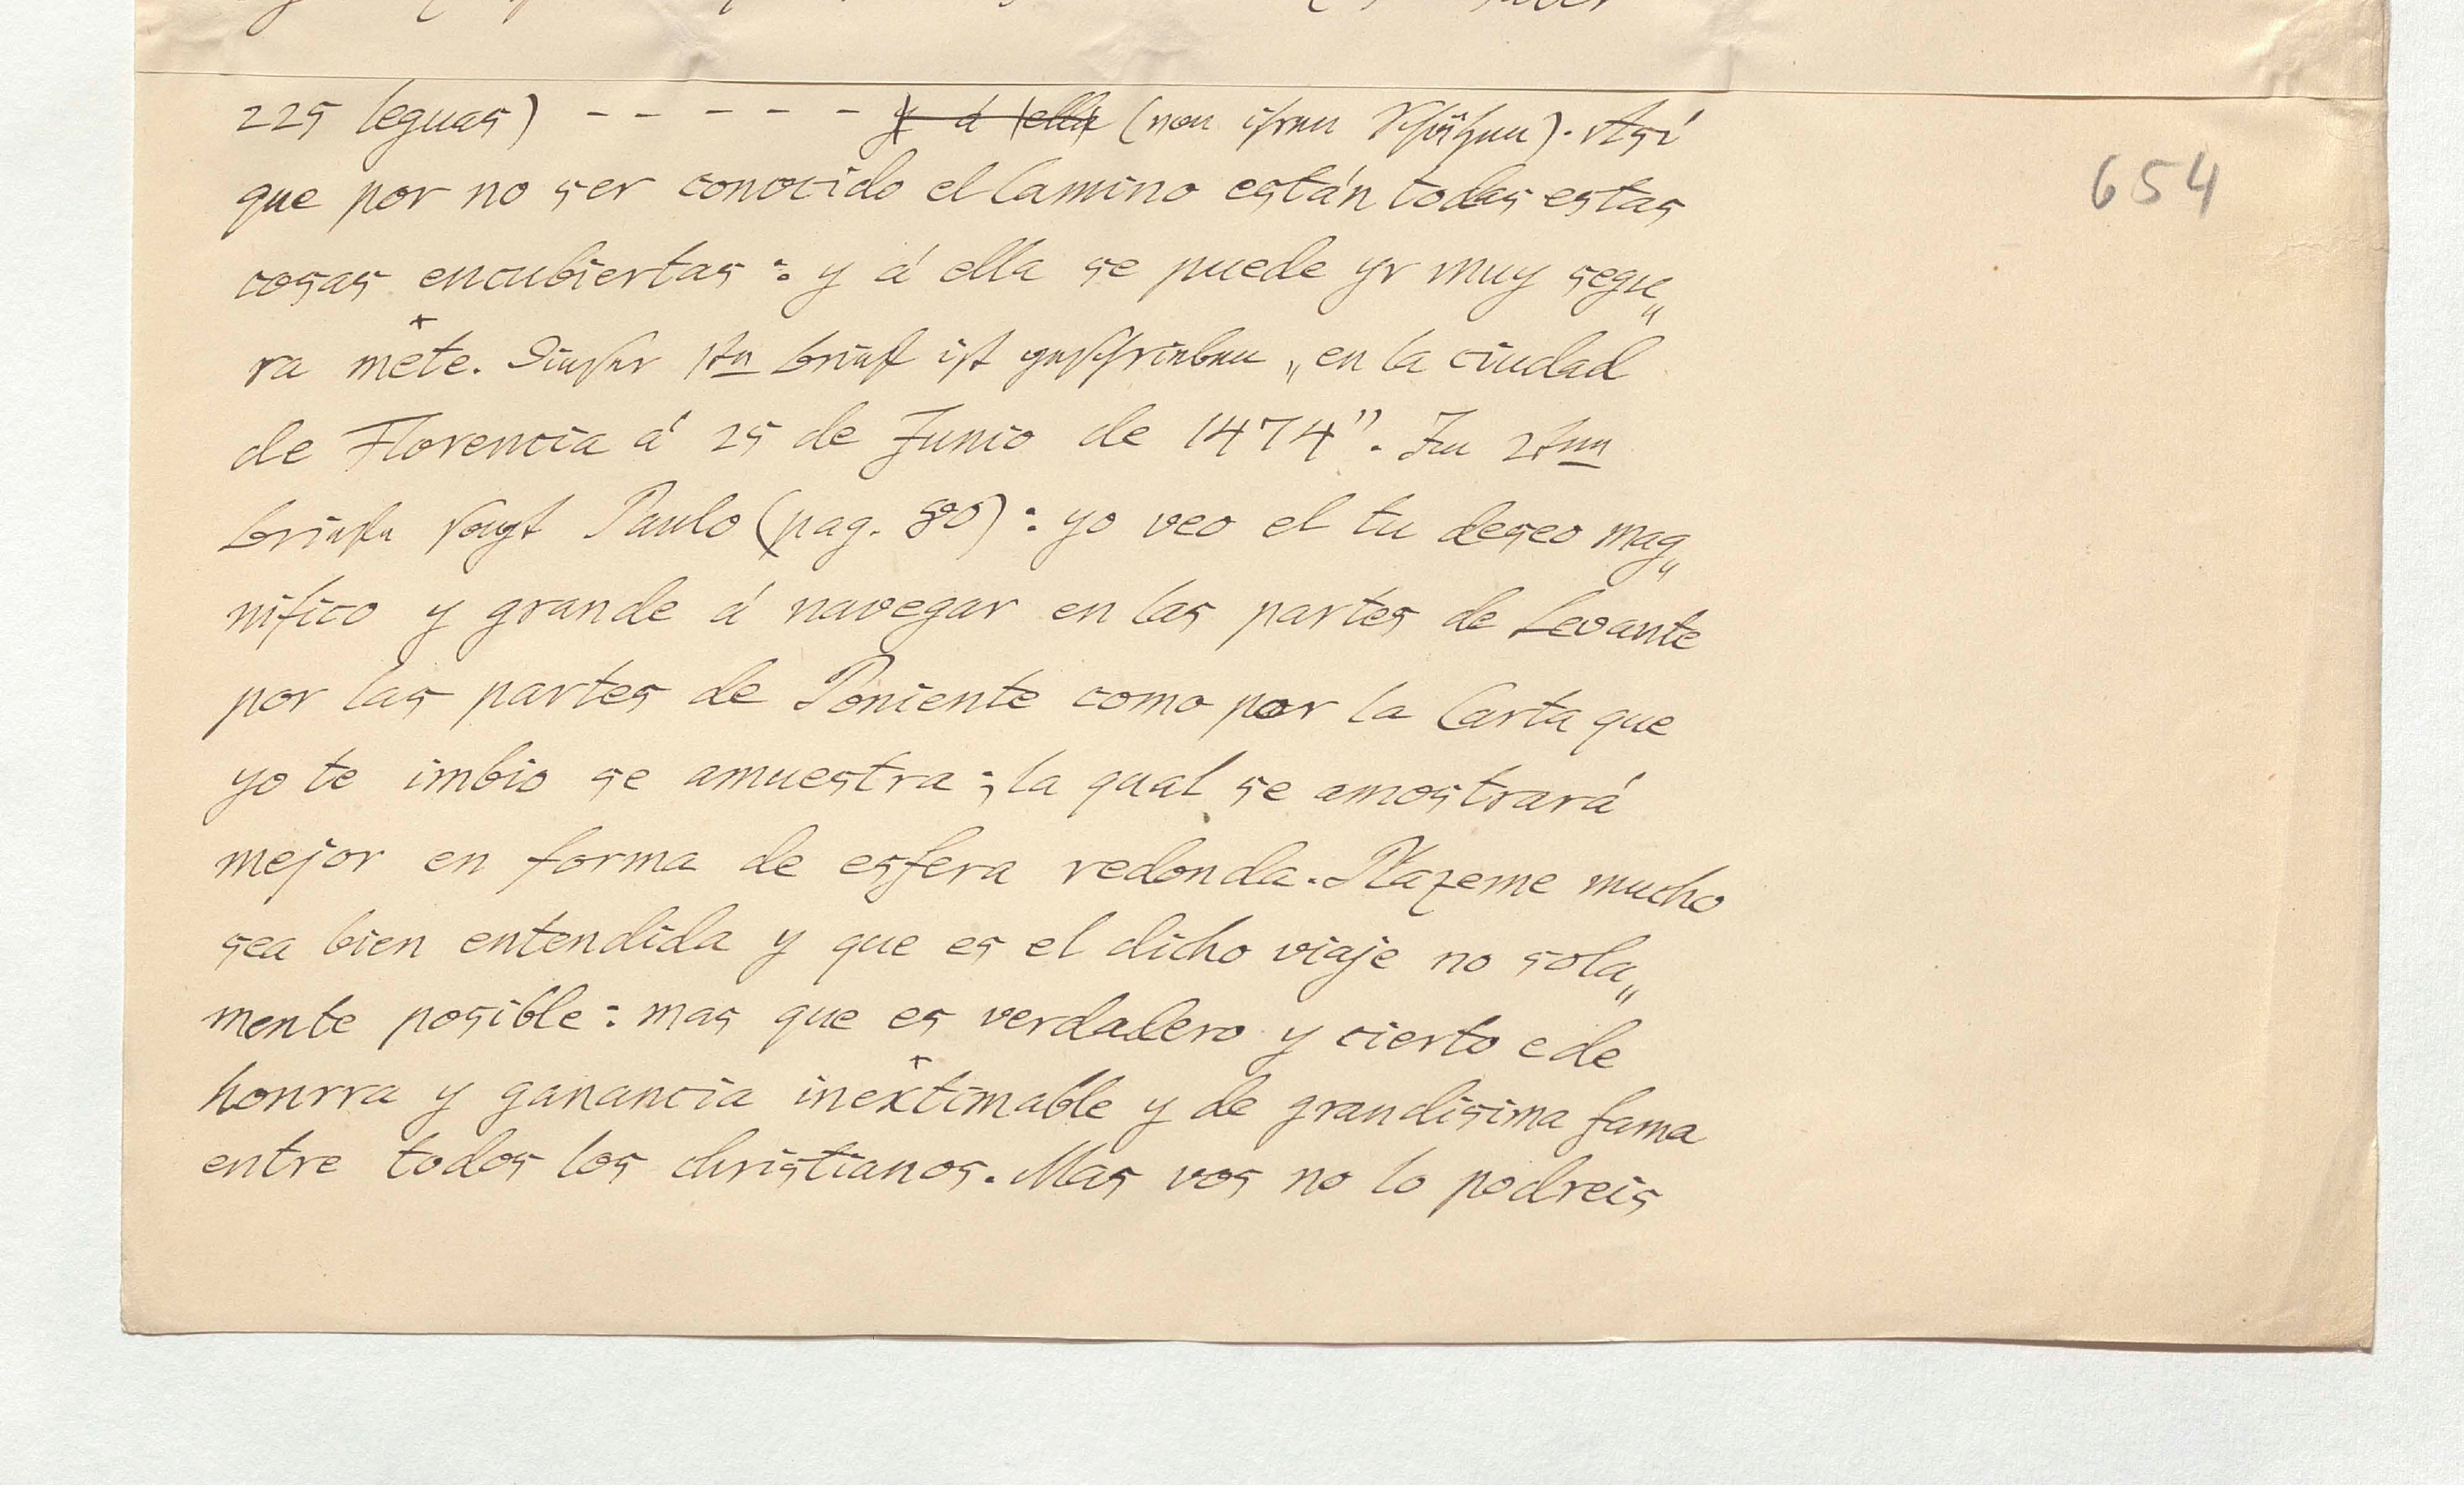 225 leguas) - - - - - - y á ella (von ihren Schätzen). Así
que por no ser conocido el Camino están todas estas
cosas encubiertas: y á ella se puede yr muy segu„
ra mẽte. Dieser 1te Brief ist geschrieben „en la ciudad
de Florencia á 25 de Junio de 1474”. Im 2ten
Briefe sagt Paulo (pag. 80): yo veo el tu deseo mag„
nifico y grande á navegar en las partes de Levante
por las partes de Poniente como por la Carta que
yo te imbio se amuestra; la qual se amostrará
mejor en forma de esfera redonda. Plazeme mucho
sea bien entendida y que es el dicho viaje no sola„
mente posible: mas que es verdadero y cierto e de
honrra y ganancia inextimable y de grandisima fama
entre todos los christianos. Mas vos no lo podreis
654